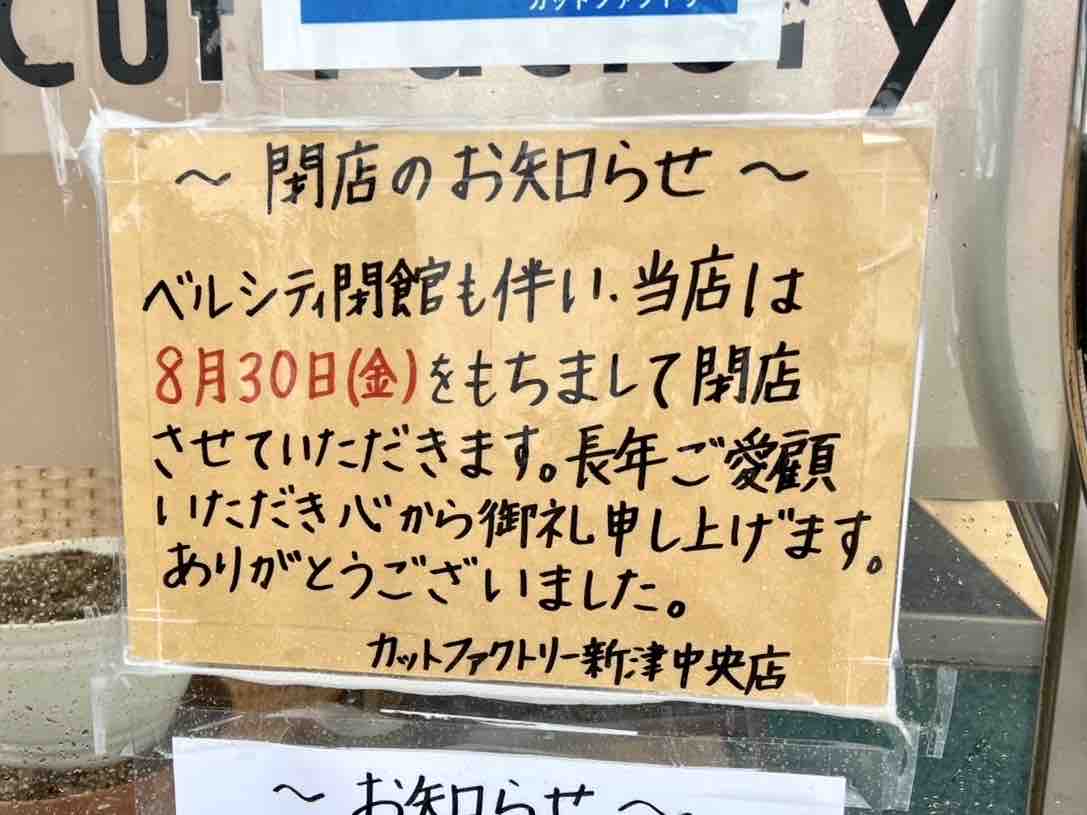 カットファクトリー
Cut Factory
～ 閉店のお知らせ ～
ベルシティ閉館も伴い、当店は
8月30日(金)をもちまして閉店
させていただきます。長年ご愛顧
いただき心から御礼申し上げます。
ありがとうございました。
カットファクトリー新津中央店
～ お知らせ ～